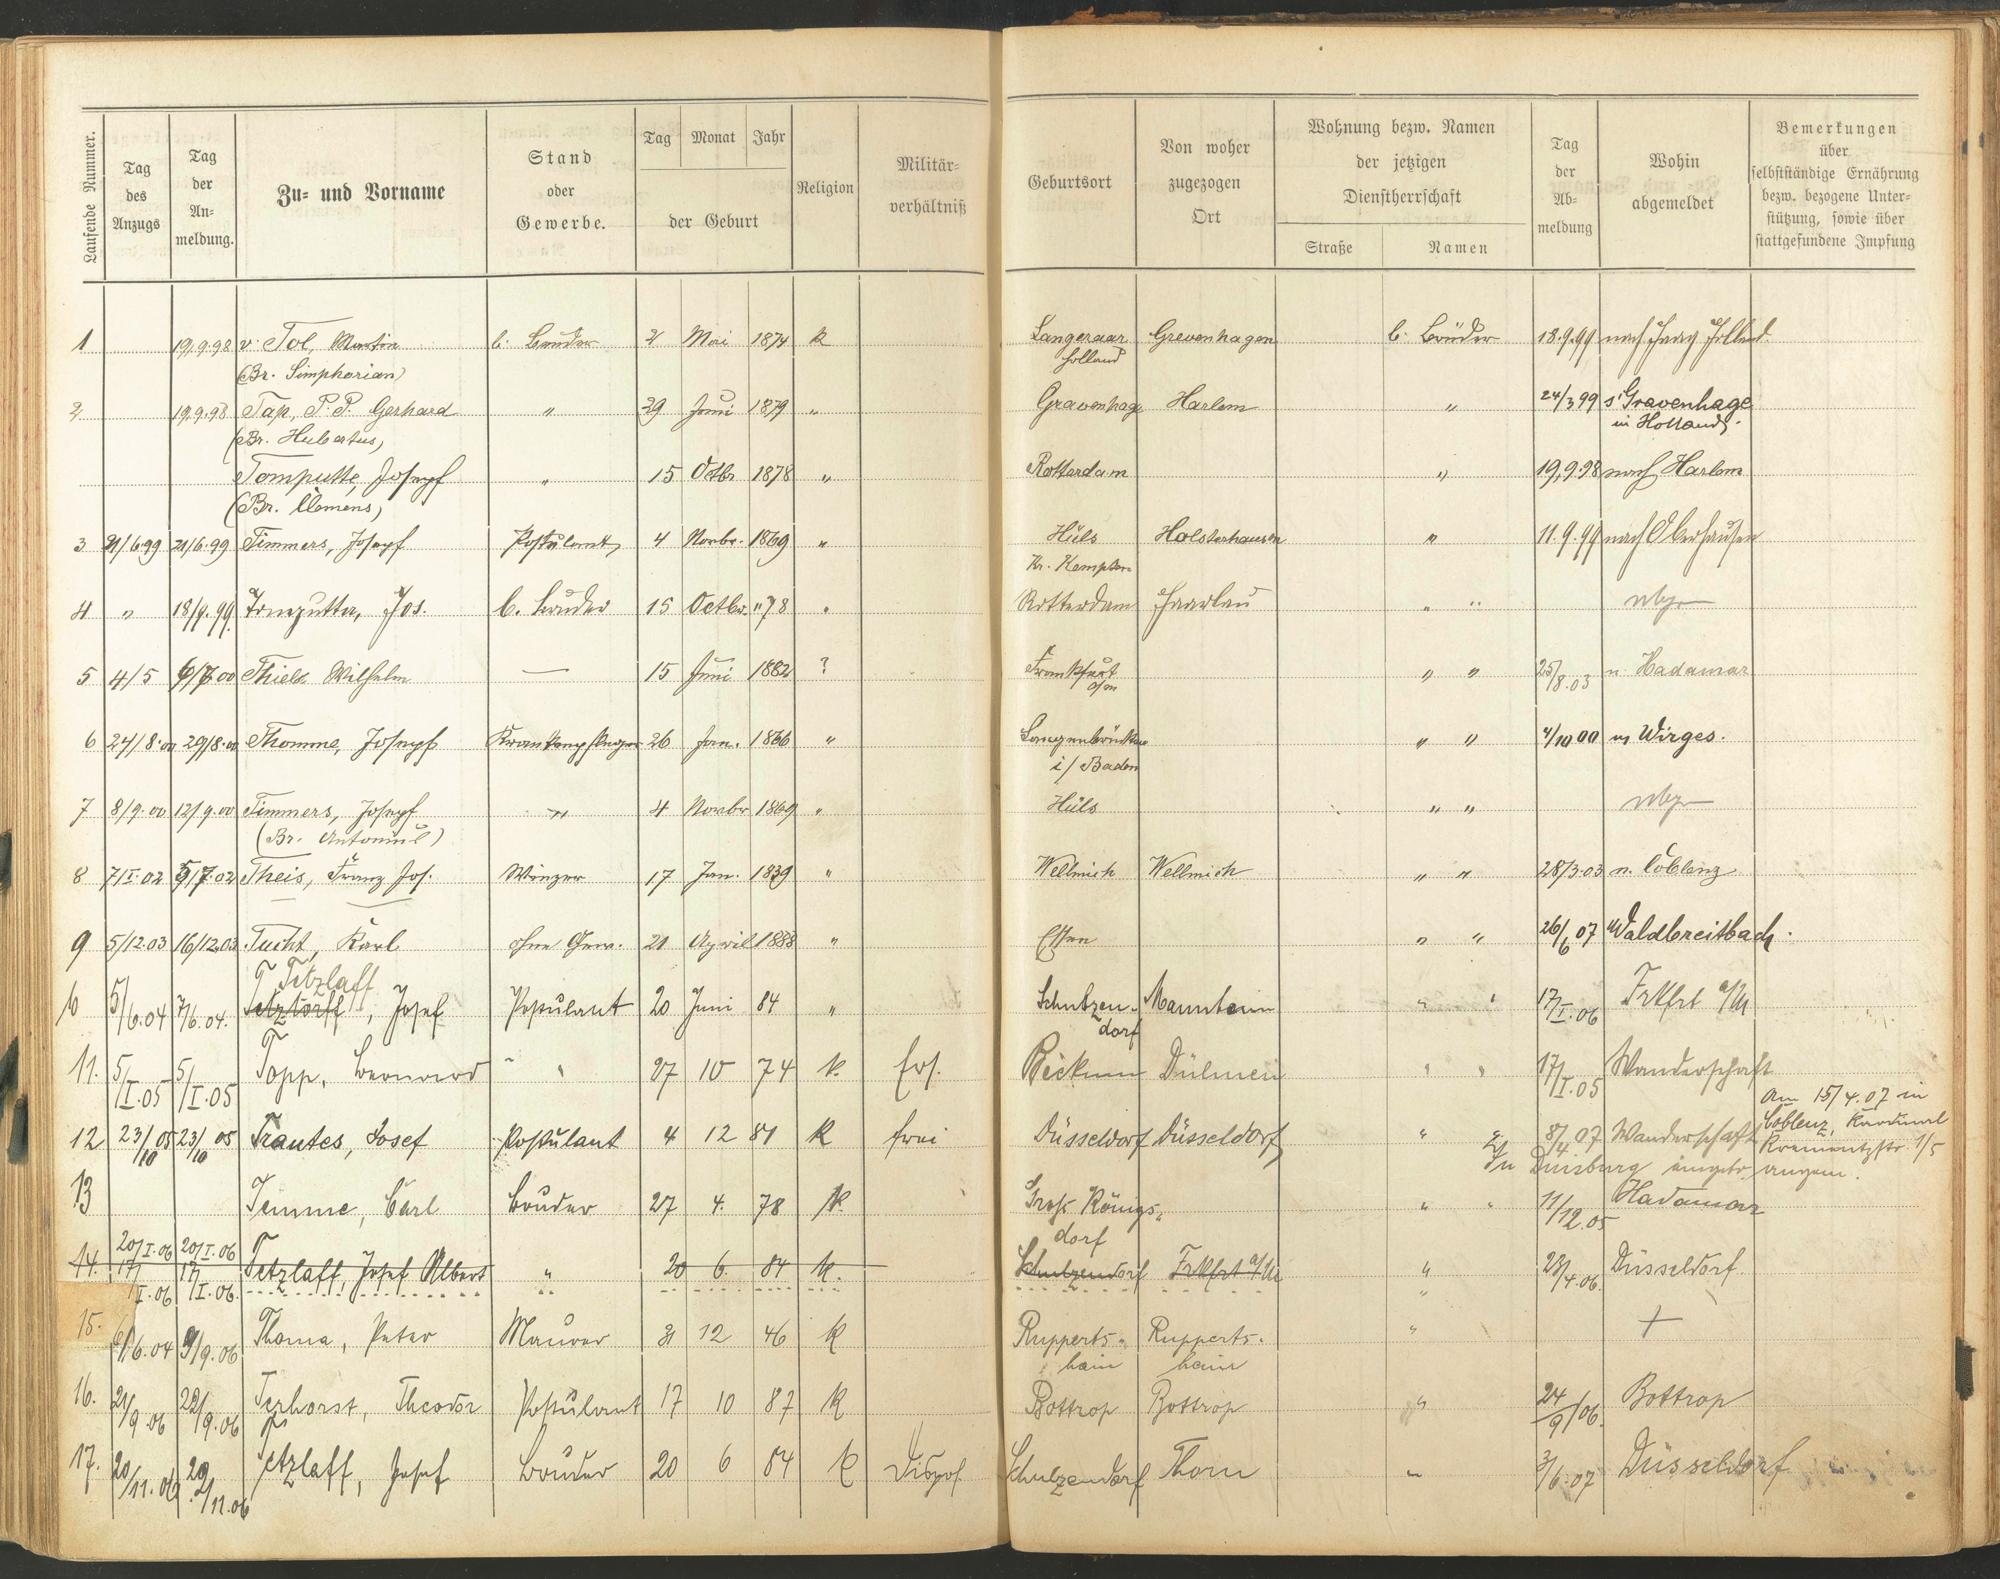 Laufende Nummer. Tag des Anzugs Tag der An-meldung. Zu- und Vorname Stand oder Gewerbe. Tag Monat Jahr der Geburt Religion Militär-verhältniß Geburtsort Von woher zugezogen Ort Wohnung bezw. Namen der jetzigen Dienstherrschaft Straße Namen Tag der Ab-meldung Wohin abgemeldet Bemerkungen über selbstständige Ernährung bezw. bezogene Unter-stützung, sowie über stattgefundene Impfung
1 19.9.98 v. Tol, Martin b. Bruder 2 Mai 1874 k Langeraar Grevenhagen b. Brüder 18.9.99 nach Haag Holland.
(Br. Simphorian) Holland
2 19.9.98 Tap, P. P. Gerhard " 29 Juni 1879 " Gravenhage Harlem " 24/3 99 s'Gravenhage
(Br. Hubertus) in Holland.
Tomputte, Joseph " 15 Octbr 1878 " Rotterdam " 19.9.98 nach Harlem
(Br. Clemens)
3 21/6.99 21/6.99 Timmers, Joseph Postulant 4 Novbr. 1869 " Hüls Holsterhausen " 11.9.99 nach Oberhausen
Kr. Kempten
4 " 18/9.99. Tomputta, Jos. b. Bruder 15 Octbr. "78 " Rotterdam Haarlau " "
5 4/5 6/7 00 Thiels Wilhelm — 15 Juni 1882 ? Frankfurt " " 25/8.03 n. Hadamar
a/m
6 24/8.00 29/8.00 Thomma, Joseph Krankenpfleger 26 Jan. 1866 " Langenbrücken " " 4/10 00 n Wirges.
i/Baden
7 8/9.00 12/9.00 Timmers, Joseph " 4 Novbr 1869 " Hüls " "
(Br. Antonius)
8 7/I.02 9/7.02 Theis, Franz Jos. Winzer 17 Jan. 1839 " Wellmich Wellmich " " 28/3.03 n. Coblenz
9 5/12.03 16/12.03 Tucht, Karl ohne Gew. 21 April 1888 " Essen " " 26/6 07 Waldbreitbach.
Tetzlaff
5/6.04 7/6.04. Tetztorff, Josef Postulant 20 Juni 84 " Schutzen- Mannheim " " 17/I.06 Frkfrt a/M
dorf
11. 5/I.05 5/I.05 Topp, Bernard " 27 10 74 k. Ers. Beckum Dülmen " " 17/I.05 Wanderschaft
Am 15/4.07 in
12 23/10 05 23/10 05 Trautes, Josef Postulant 4 12 81 k frei Düsseldorf Düsseldorf " " 8/4 07 Wanderschaft Coblenz, Kardinal
Krementzstr. 1/5
In Duisburg angem.
13 Temme, Carl Bruder 27 4. 78 k. Groß Königs- " " 11/12.05 Hadamar
dorf
20/I.06 20/I.06
14. 17/I.06 17/I.06. Tetzlaff, Josef Albert " 20 6. 84 k. Schulzendorf Frkfrt a/M " 23/4.06. Düsseldorf
15. 6/6.04 9/9.06 Thoma, Peter Maurer 31 12 46 k Rupperts- Rupperts- " +
hain hain
16. 21/9.06 22/9.06 Terhorst, Theodor Postulant 17 10 87 k Bottrop Bottrop " 24/9/06. Bottrop
17. 20/11.06 20/11.06 Tetzlaff, Josef Bruder 20 6 84 k Dispos. Schulzendorf Thorn " 3/6.07 Düsseldorf